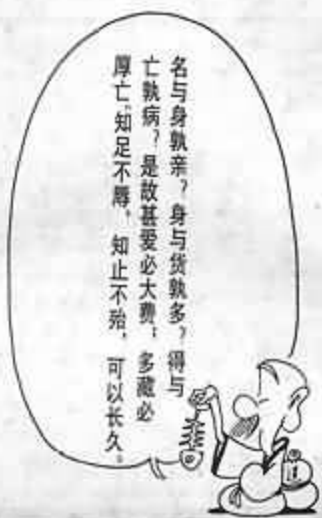 名与身孰亲？身与货孰多？得与
亡孰病？是故甚爱必大费；多藏必
厚亡。知足不辱，知止不殆，可以长久。